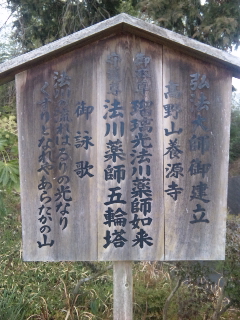 弘法大師御建立
高野山養源寺
瑠璃光法川薬師如来
法川薬師五輪塔
御詠歌
法の流れはるりの光なり
くすりとなれやあらたかの山